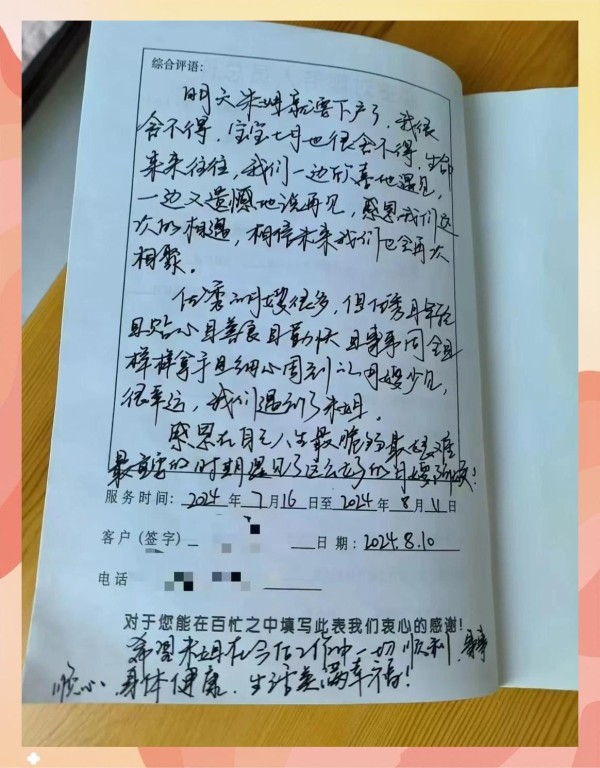 综合评语:
明天朱姐就要下户了，我很
舍不得，宝宝七月也很舍不得，生命
来来往往，我们一边欣喜地遇见，
一边又遗憾地说再见，感恩我们这
次的相遇，相信未来我们也会再次
相聚。
优秀的月嫂很多，但优秀且年轻
且贴心且善良且勤快且事事周全且
样样拿手且细心周到的月嫂少见，
很幸运，我们遇到了朱姐。
感恩在自己人生最脆弱最艰难
最 的时期遇见了这么好的月嫂
服务时间: 2024 年 7月16 日至 2024 年 8月 11 日
客户(签字) 日期: 2024.8.10
电话
对于您能在百忙之中填写此表我们衷心的感谢!
希望朱姐在今后工作中一切顺利，事事
顺心，身体健康，生活美满幸福!